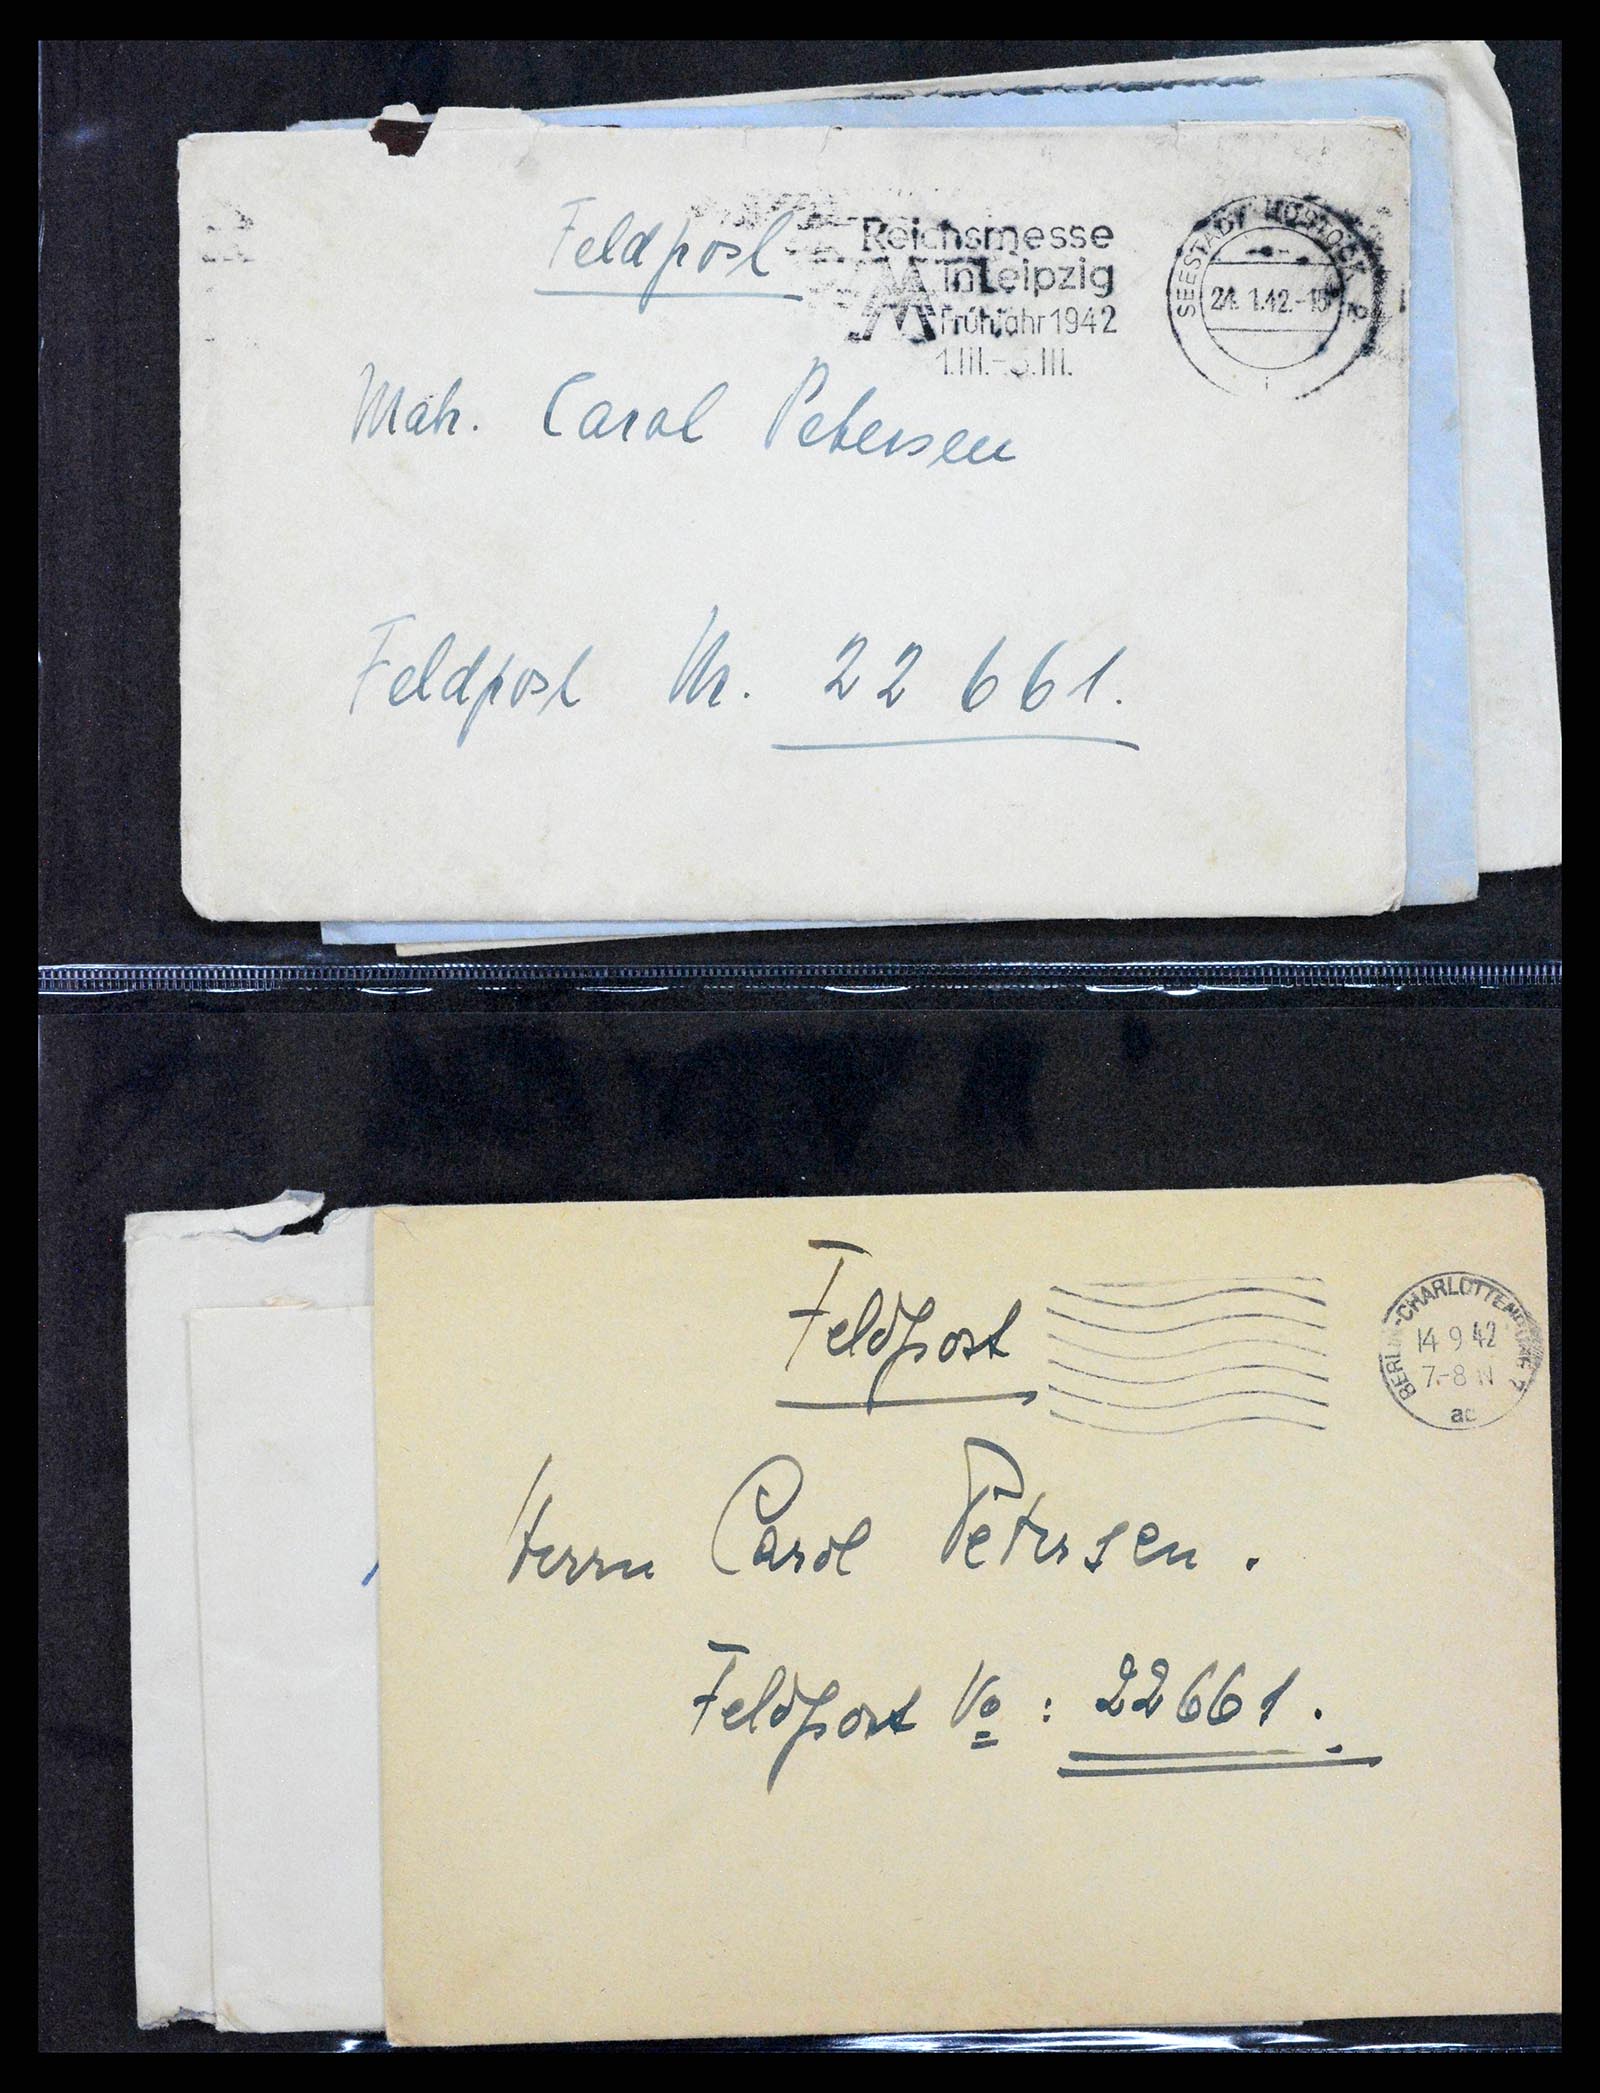 Feldpost
Reichsmesse
in Leipzig
Frühjahr 1942
1.III.-5.III.
SEESTADT ROSTOCK 2
24. 1.42.-15
i
Matr. Carol Petersen
Feldpost Nr. 22 661.
Feldpost
BERLIN-CHARLOTTENBURG 2
14 9 42
7-8 N
Herrn Carol Petersen.
Feldpost No: 22661.